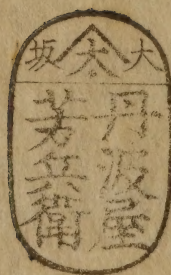 大坂
大
丹波屋
芳兵衛